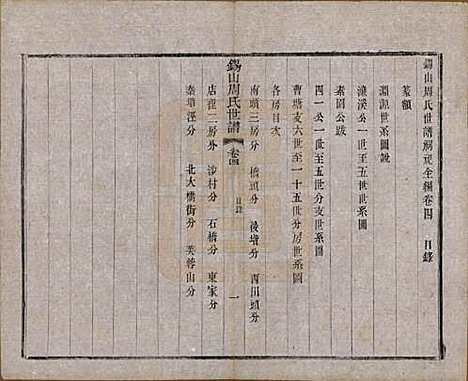 錫山周氏世譜解說全編卷四　目錄
篆額
淵源世系圖說
濂溪公一世至五世系圖
素園公跋
四一公一世至五世分支世系圖
曹塘支六世至一十五世分房世系圖
各房目次
南頭三房分　橋頭分　後增分　西川頭分
錫山周氏世譜　卷四　目錄　一
店莊二房分　沙村分　石橋分　東家分
秦華涇分　北大橋街分　芙蓉山分